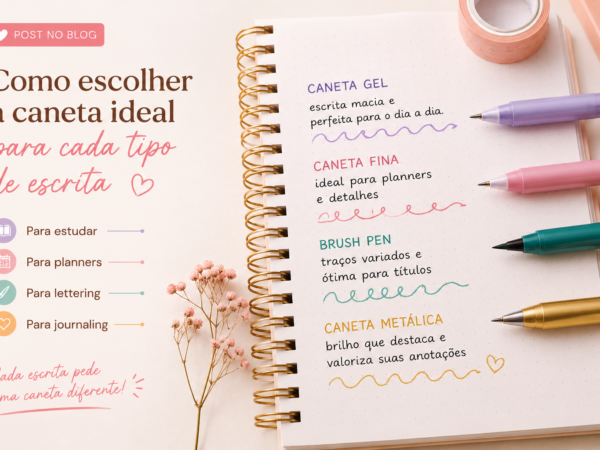 POST NO BLOG
Como escolher
a caneta ideal
para cada tipo
de escrita
Para estudar
Para planners
Para lettering
Para journaling
Cada escrita pede
uma caneta diferente!
CANETA GEL
escrita macia e
perfeita para o dia a dia.
CANETA FINA
ideal para planners
e detalhes
BRUSH PEN
traços variados e
ótima para títulos
CANETA METÁLICA
brilho que destaca e
valoriza suas anotações